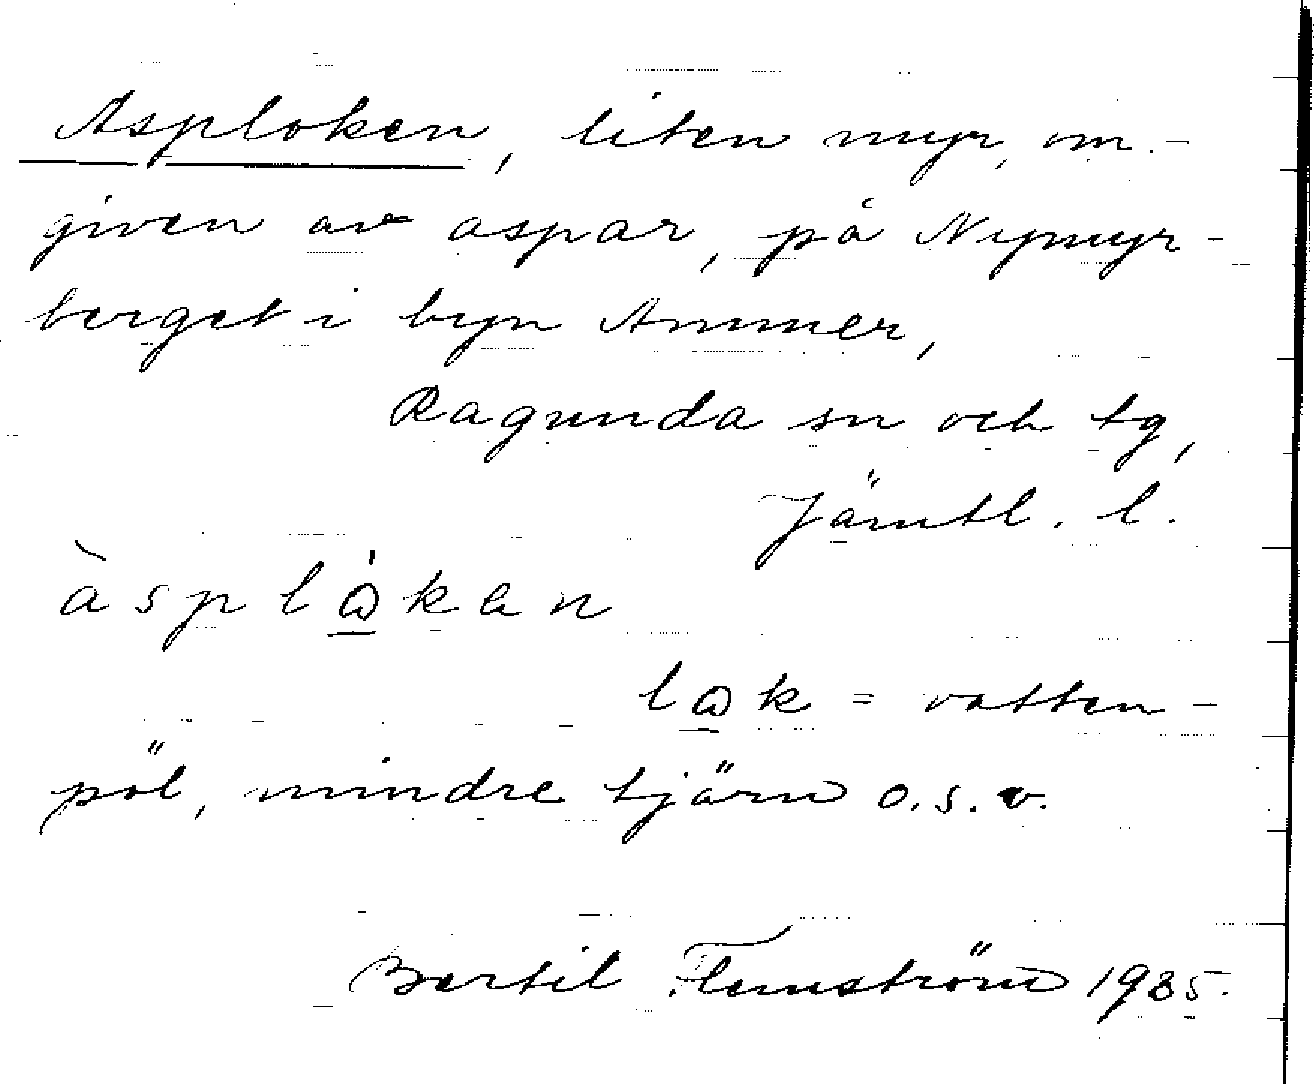 Asploken, liten myr, om-
given av aspar, på Nymyr-
berget i byn Ammer,
Ragunda sn och tg,
Jämtl. l.
àsplåkan
låk = vatten-
pöl, mindre tjärn o.s.v.
Bertil Flemström 1935.